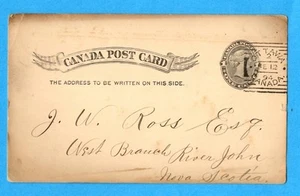 CANADA POST CARD
THE ADDRESS TO BE WRITTEN ON THIS SIDE.
1
12
CANADA
J. W. Ross Esq.
West Branch River John
Nova Scotia